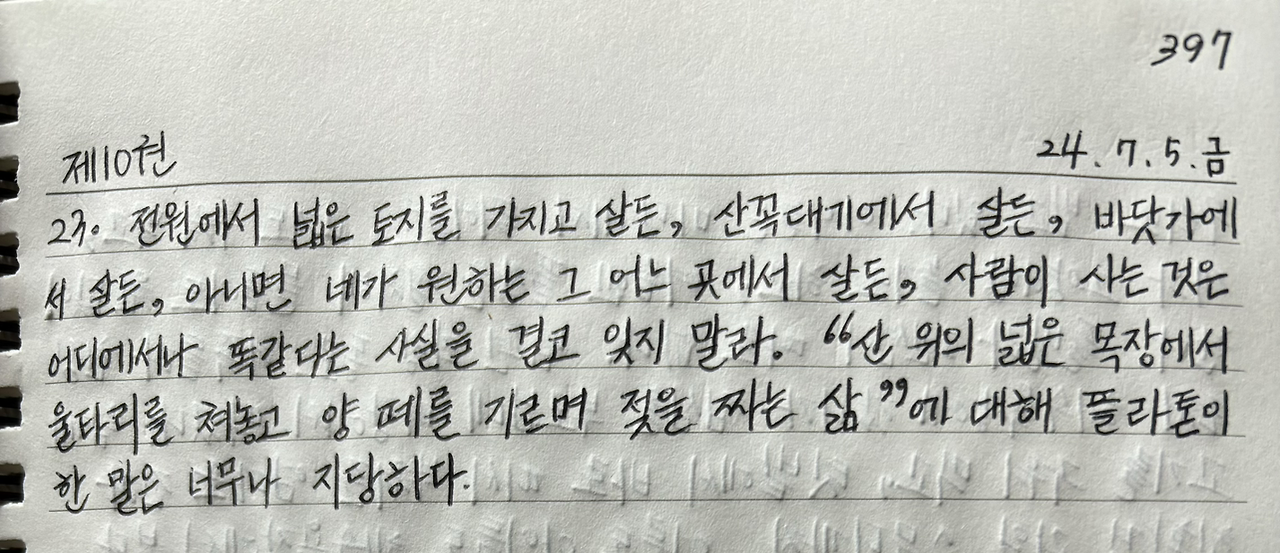 397
제10권 24.7.5.금
23. 전원에서 넓은 토지를 가지고 살든, 산꼭대기에서 살든, 바닷가에
서 살든, 아니면 네가 원하는 그 어느 곳에서 살든, 사람이 사는 것은
어디에서나 똑같다는 사실을 결코 잊지 말라. “산 위의 넓은 목장에서
울타리를 쳐놓고 양 떼를 기르며 젖을 짜는 삶”에 대해 플라톤이
한 말은 너무나 지당하다.